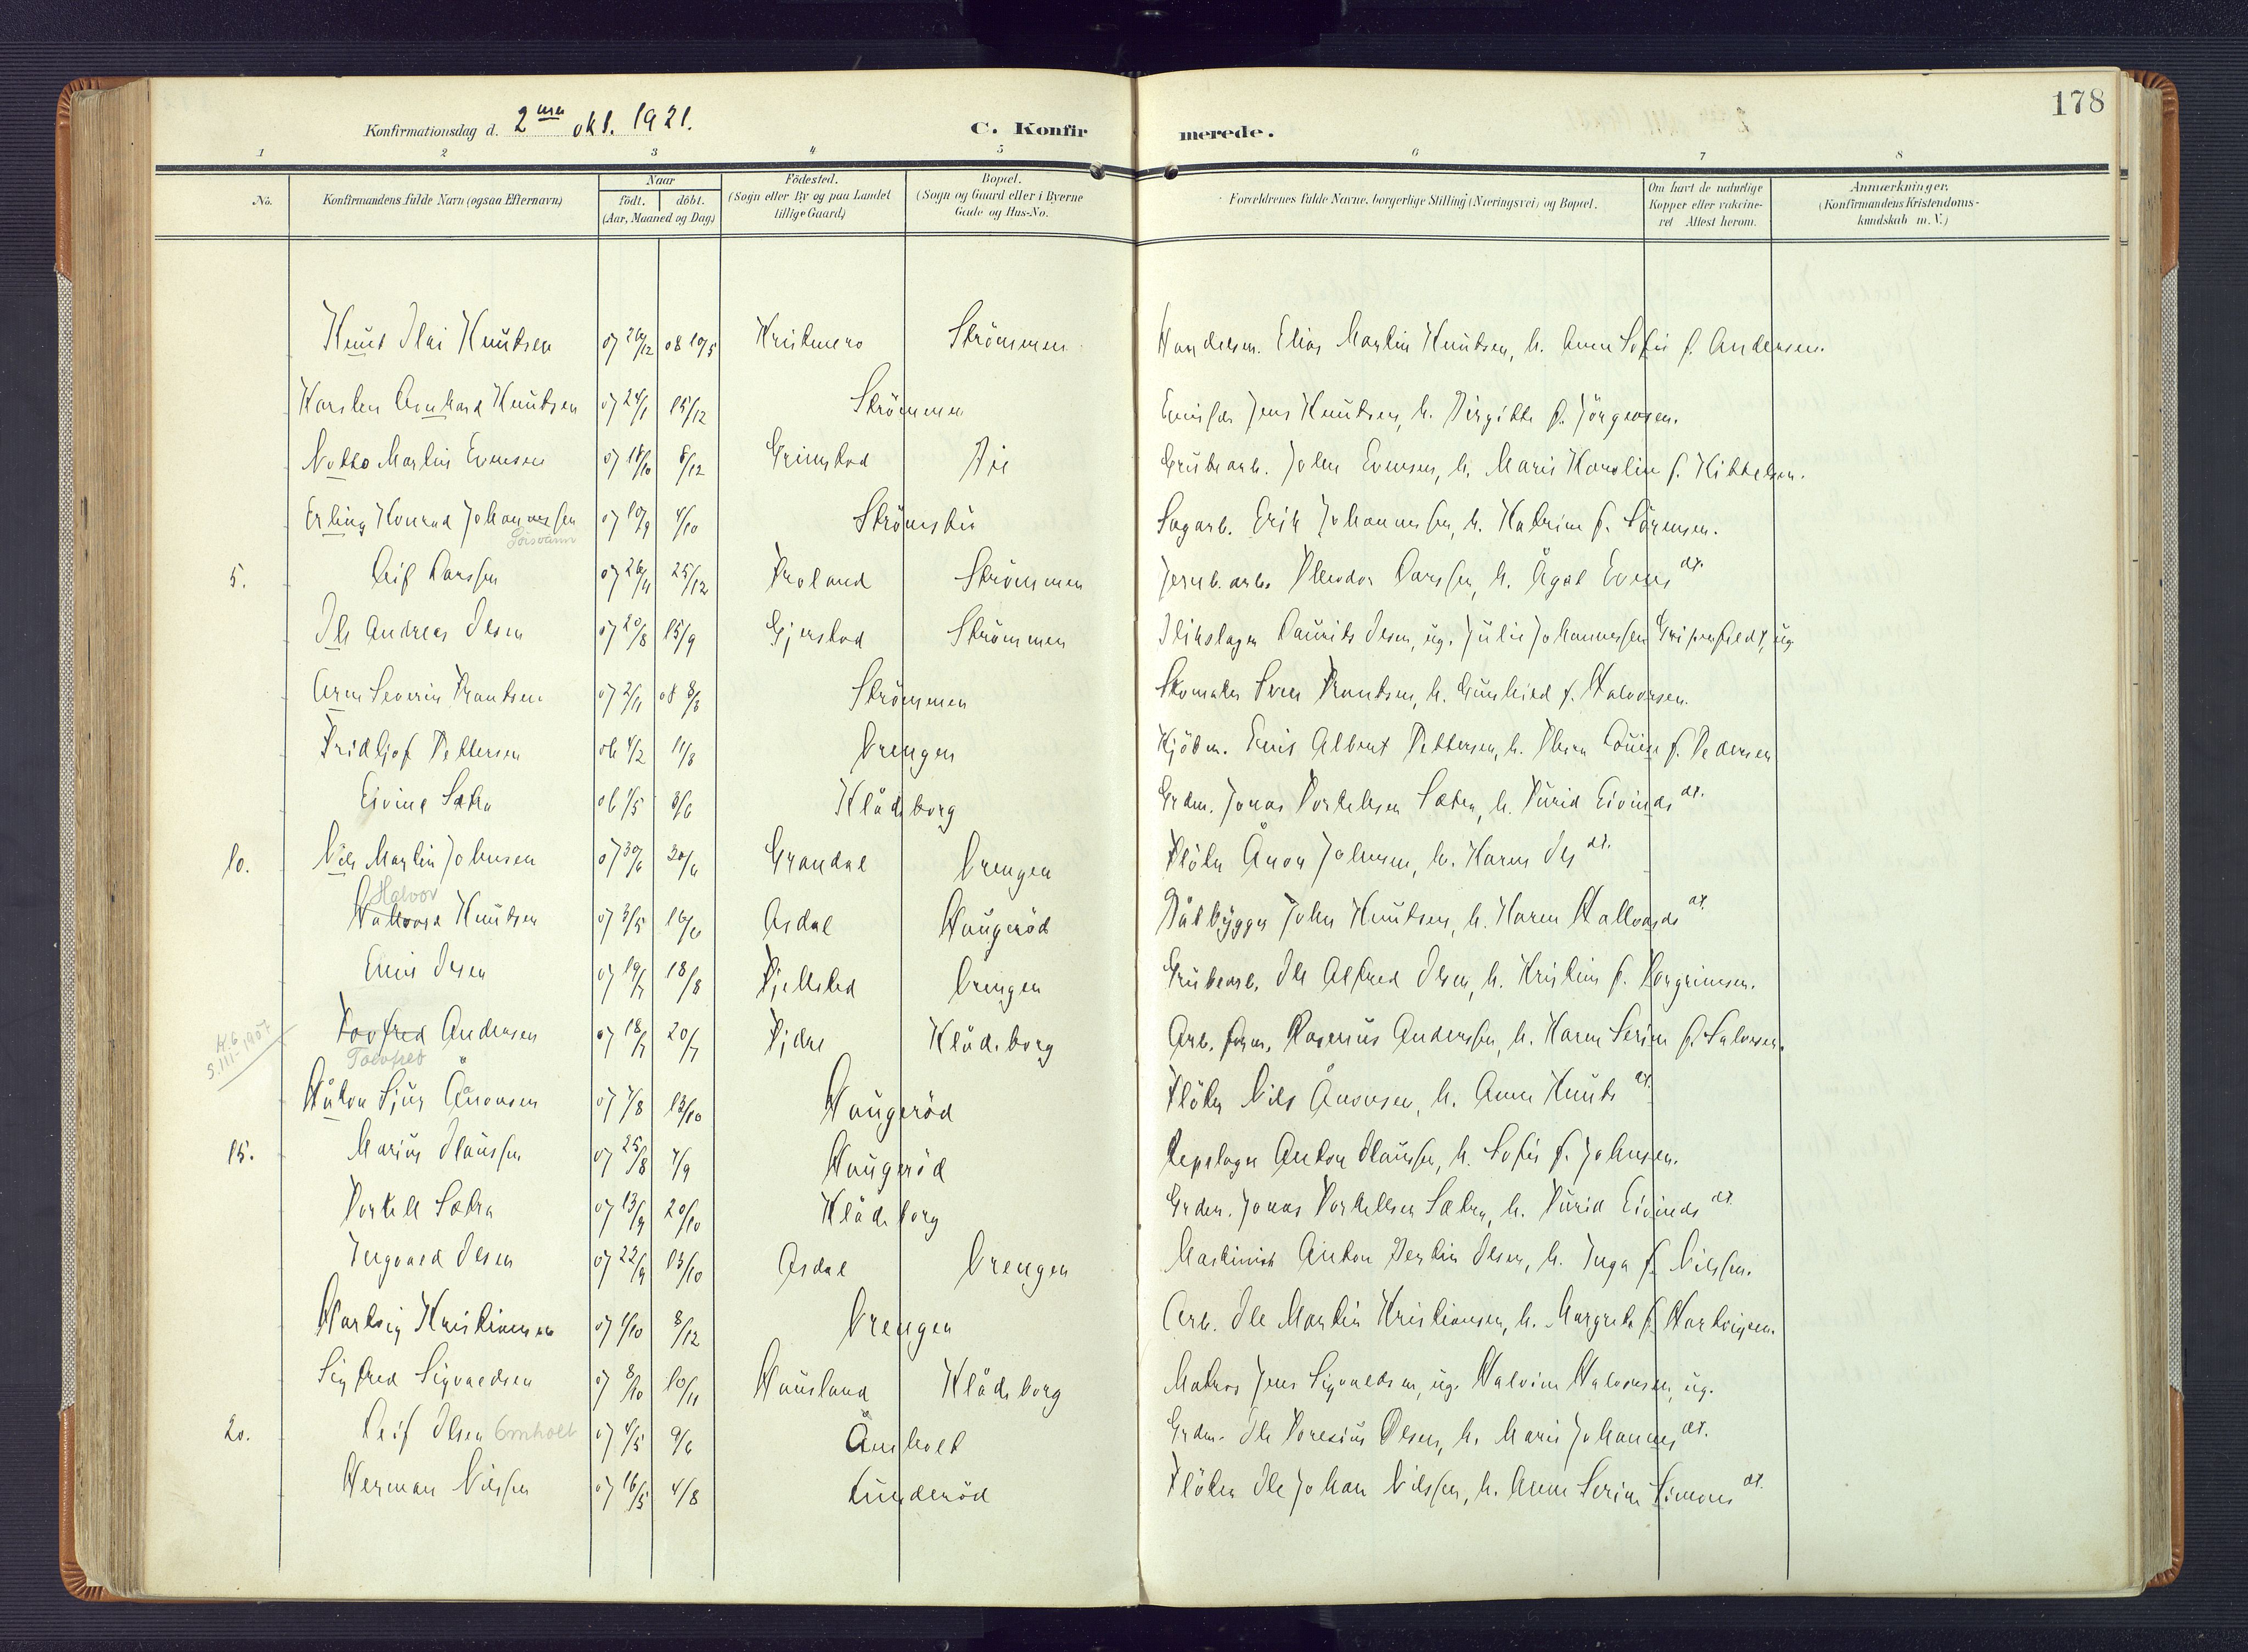 178
Konfirmationsdag d. 2den okt. 1921.
C. Konfirmerede.
1 2 3 4 5 6 7 8
No. Konfirmandens fulde Navn (ogsaa Efternavn) Naar födt. döbt. (Aar, Maaned og Dag) Födested. (Sogn eller By og paa Landet tillige Gaard) Bopæl. (Sogn og Gaard eller i Byerne Gade og Hus-No. Forældrenes fulde Navne, borgerlige Stilling (Næringsvei) og Bopæl. Om havt de naturlige Kopper eller vaccineret Attest herom. Anmærkninger. (Konfirmandens Kristendomskundskab m. V.)
Knut Knutsen 07 26/12 08 10/5 Strömmen Elias Martin Knutsen, h. Anna Sofie f. Andersen.
Karsten Knutsen 07 24/1 15/12 Strömmen Jens Knutsen, h. Birgitte f. Jörgensen.
Notto Martin Evensen 07 18/10 8/12 Grimstad Bie Grubearb. John Evensen, h. Marie Karolin f. Kittelsen.
Erling Konrad Johannessen 07 10/9 4/10 Strömsbu Sagarb. Erik Johannessen, h. Katrine f. Sörensen.
5. Leif Larssen 07 26/11 25/12 Froland Strömmen Jernb. arb. Theodor Larssen, h. Ågot Evens dt.
Ole Andreas Olsen 07 20/8 15/9 Gjerstad Strömmen Laurits Olsen, ug. Julie Johannessen ug.
Arne Severin Frantsen 07 2/11 08 8/3 Strömmen Skomaker Sven Frantsen, h. Gunhild f. Halvorsen.
Fridtjof Pettersen 06 4/2 11/3 Vrengen Kjöbm. Albert Pettersen, h. Louise f. Pedersen
Eivind Sætra 06 1/5 3/6 Klådeborg Grdm. Jonas Torkelsen Sætra, h. Turid Eivinds dt.
10. Nils Martin Johnsen 07 30/4 20/6 Grandal Vrengen Flöter Ånon Johnsen, h. Karen Ols dt.
Halvor
Hallvord Knutsen 07 3/5 16/6 Asdal Haugeröd Båtbygger John Knutsen, h. Karen Hallvords dt.
Olsen 07 19/7 18/8 Fjellsted Vrengen Grubearb. Ole Alfred Olsen, h. Kristine f. Torgrimsen.
Torfred Andersen 07 18/7 20/7 Klådeborg Arb. form. Rasmus Anderssen, h. Karen Serine f. Salvesen.
Tolvfred
Håkon Sjur Ånonsen 07 7/8 13/10 Haugeröd Flöter Nils Ånonsen, h. Anne Knuts dt.
15. Marius Olaussen 07 25/8 7/9 Haugeröd Repslager Anton Olaussen, h. Sofie f. Johnsen.
Torkell Sætra 07 13/9 20/10 Klådeborg Grdm. Jonas Torkellsen Sætra, h. Turid Eivinds dt.
Ingvald Olsen 07 22/9 13/10 Asdal Vrengen Maskinist Anton Bertin Olsen, h. Inga f. Nilssen.
Hartvig Kristiansen 07 1/10 8/12 Vrengen Arb. Ole Martin Kristiansen, h. Margrete f. Hartvigsen.
Sigfred Sigvaldsen 07 8/10 10/11 Hausland Klådeborg Matros Jens Sigvaldsen, ug. Halvine Halvorsen, ug.
20. Leif Olsen Omholt 07 4/5 9/6 Åmholt Grdm. Ole Toresius Olsen, h. Marie Johannes dt.
Herman Nilssen 07 16/5 4/8 Lunderöd Flöter Ole Johan Nilssen, h. Anne Serine Simons dt.